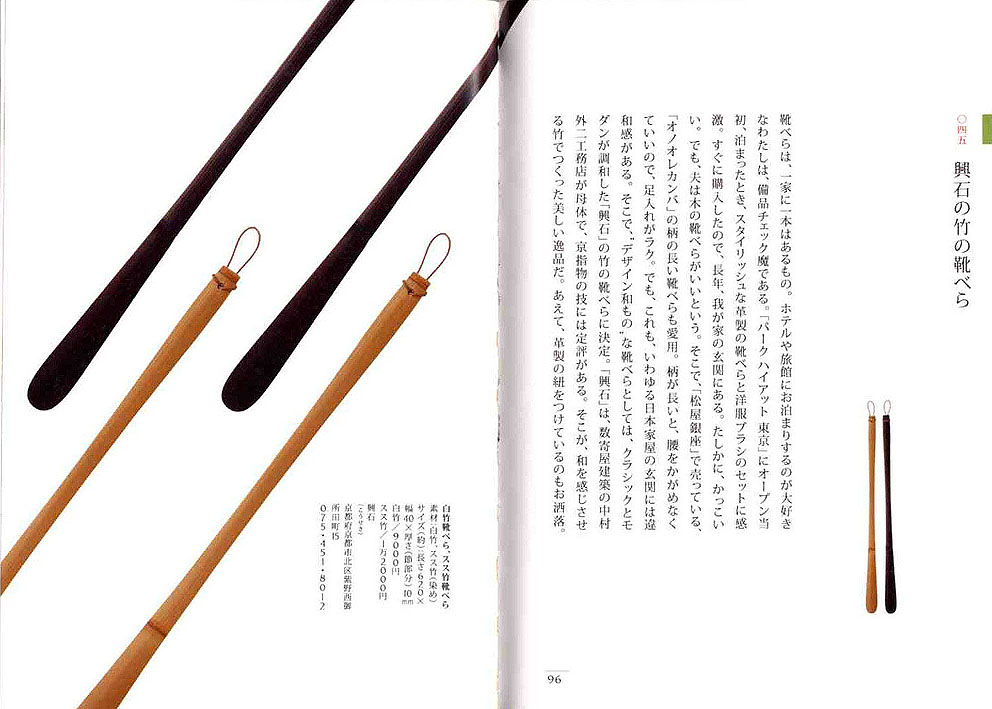 〇四五 興石の竹の靴べら
靴べらは、一家に一本はあるもの。ホテルや旅館にお泊まりするのが大好き
なわたしは、備品チェック魔である。「パーク ハイアット 東京」にオープン当
初、泊まったとき、スタイリッシュな革製の靴べらと洋服ブラシのセットに感
激。すぐに購入したので、長年、我が家の玄関にある。たしかに、かっこい
い。でも、夫は木の靴べらがいいという。そこで、「松屋銀座」で売っている、
「オノオレカンバ」の柄の長い靴べらも愛用。柄が長いと、腰をかがめなく
ていいので、足入れがラク。でも、これも、いわゆる日本家屋の玄関には違
和感がある。そこで、“デザイン和もの”な靴べらとしては、クラシックとモ
ダンが調和した「興石」の竹の靴べらに決定。「興石」は、数寄屋建築の中村
外二工務店が母体で、京指物の技には定評がある。そこが、和を感じさせ
る竹でつくった美しい逸品だ。あえて、革製の紐をつけているのもお洒落。
96
白竹靴べら、スス竹靴べら
素材：白竹、スス竹（染め）
サイズ（約）：長さ620×
幅40×厚さ（節部分）10㎜
白竹／9000円
スス竹／1万2000円
興石
（こうせき）
京都府京都市北区紫野西御
所田町15
075・451・8012